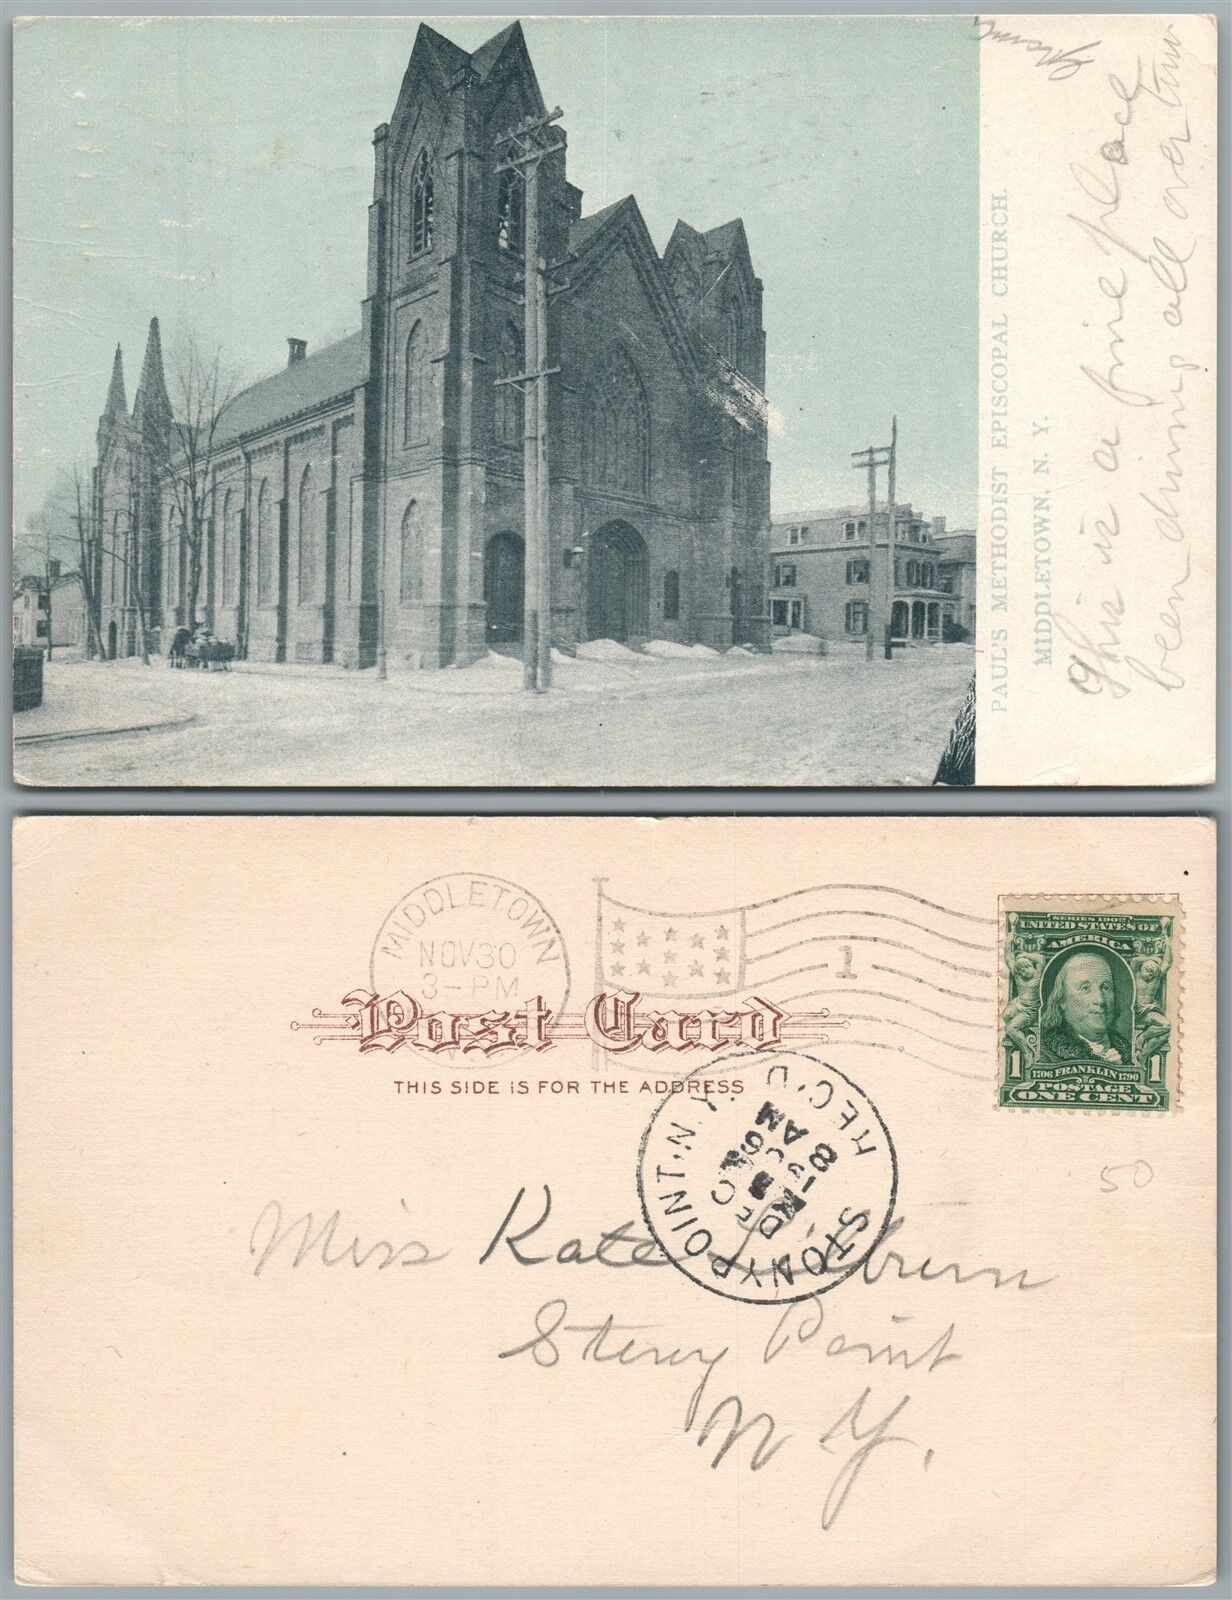 PAUL'S METHODIST EPISCOPAL CHURCH.
MIDDLETOWN, N. Y.
This is a fine place
been driving all over town
MIDDLETOWN
NOV 30
3-PM
1
Post Card
THIS SIDE IS FOR THE ADDRESS
SERIES 1902
UNITED STATES OF
AMERICA
1706 FRANKLIN 1790
1 POSTAGE 1
ONE CENT
STONY POINT. N.Y.
REC'D
8 AM
50
Miss Kate
Stony Point
N Y.